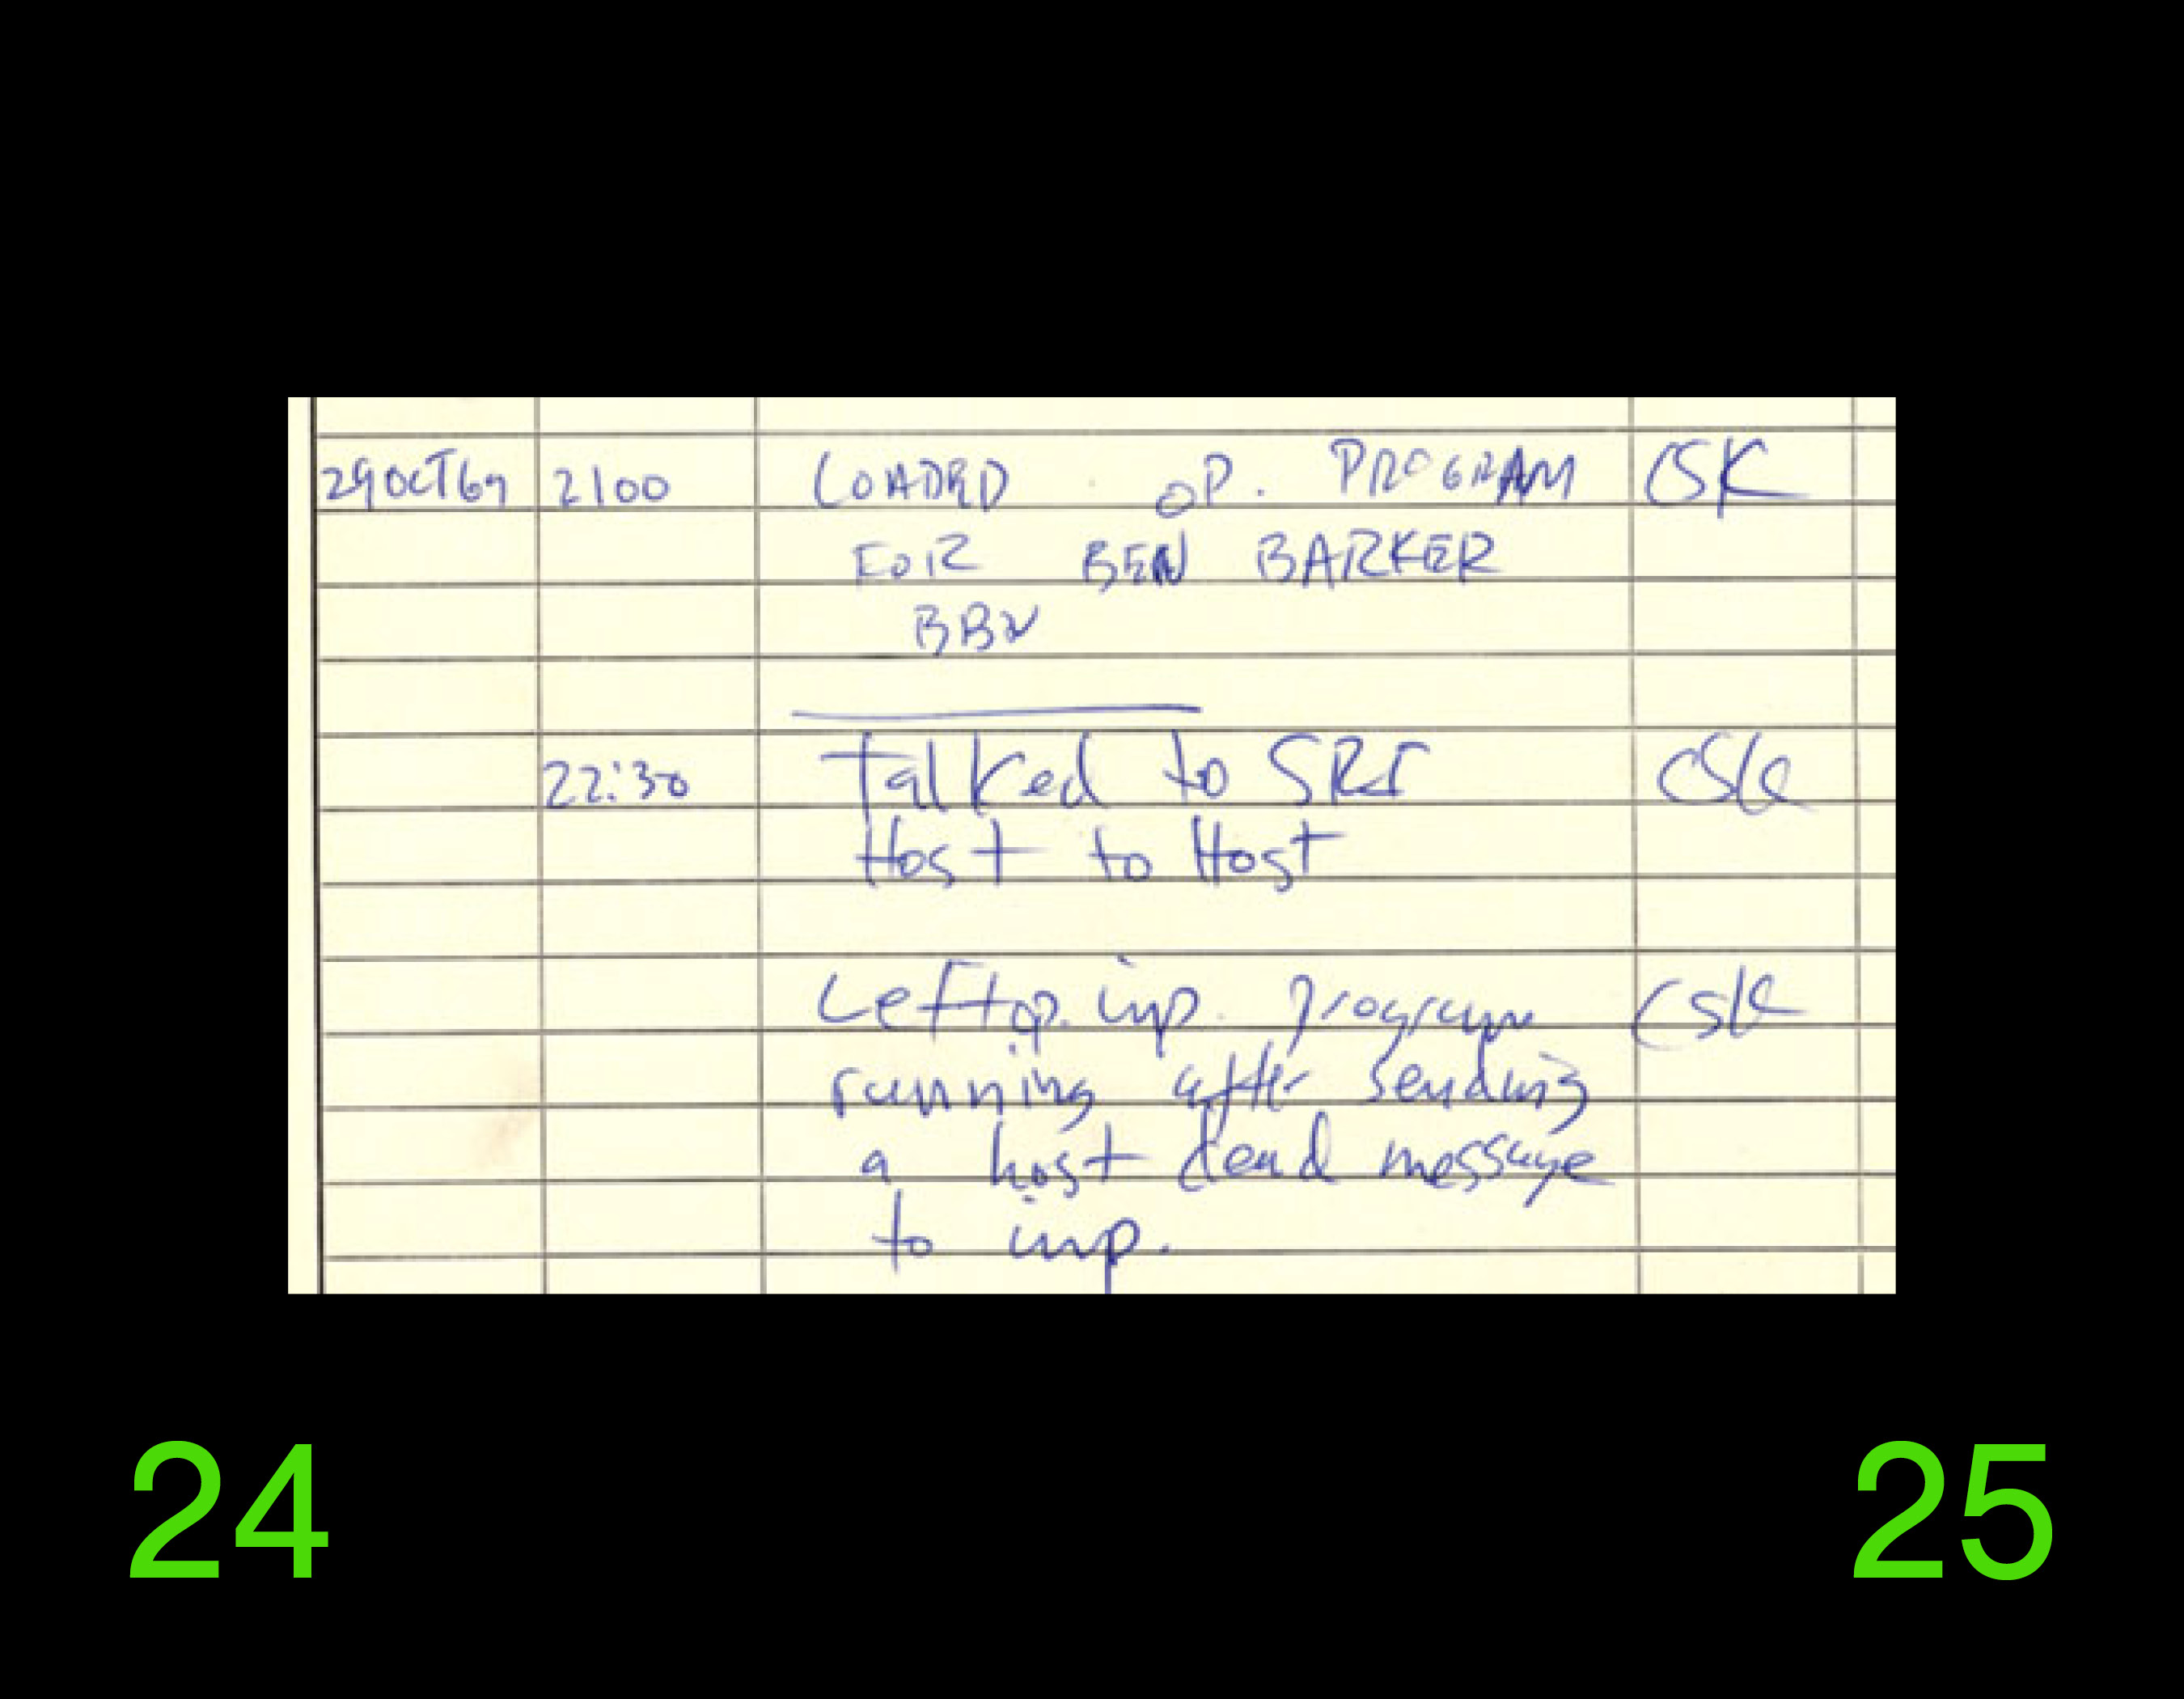 29OCT69 2100 LOADED OP. PROGRAM CSK
FOR BEN BARKER
BBN
22:30 Talked to SRI CSK
Host to Host
Left op. imp. program CSK
running after sending
a host dead message
to imp.
24 25